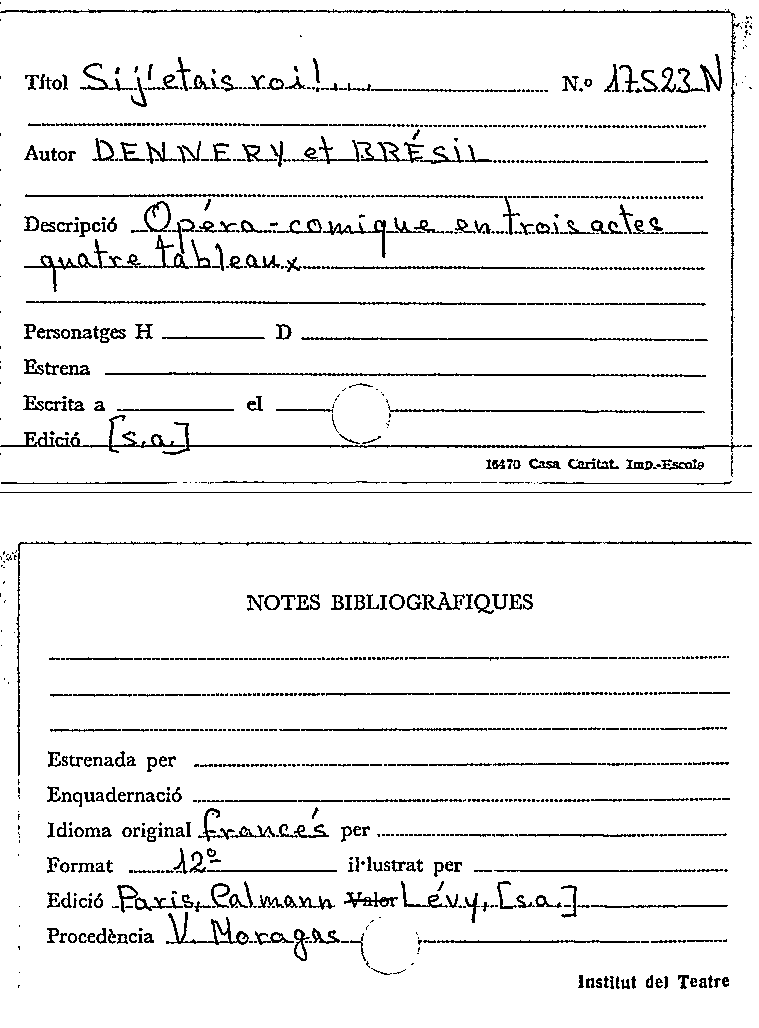 Títol Si j'etais roi!... N.º 17523N
Autor DENNERY et BRÉSIL
Descripció Opéra-comique en trois actes
quatre tableaux
Personatges H D
Estrena
Escrita a el
Edició [s.a.]
16470 Casa Caritat. Imp.-Escola
NOTES BIBLIOGRÀFIQUES
Estrenada per
Enquadernació
Idioma original francés per
Format 12º il·lustrat per
Edició Paris, Calmann Valor Lévy, [s.a.]
Procedència V. Moragas
Institut del Teatre